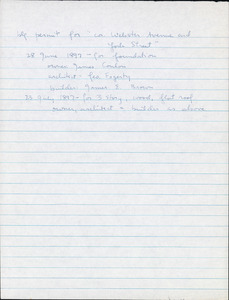 permit for "on Webster Avenue and
Street"
28 June 1897 - for foundation
owner James Conlon
architect - Geo Fogerty
builder James E.
23 July 1897 - for 3 story, wood, flat roof
owner, architect & builder as above